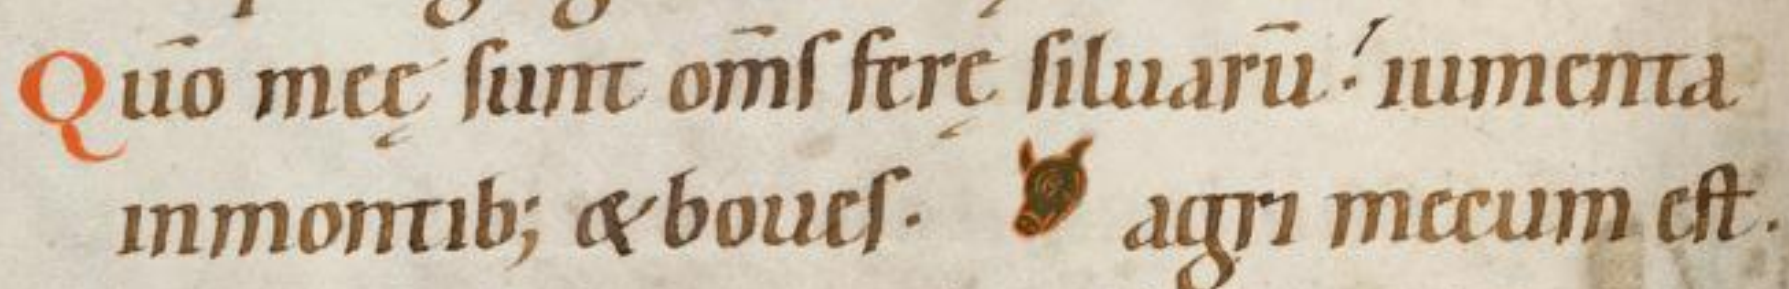 Quō meę sunt om̄s ferę siluarū: iumenta
inmontib; & boues. agri mecum est.